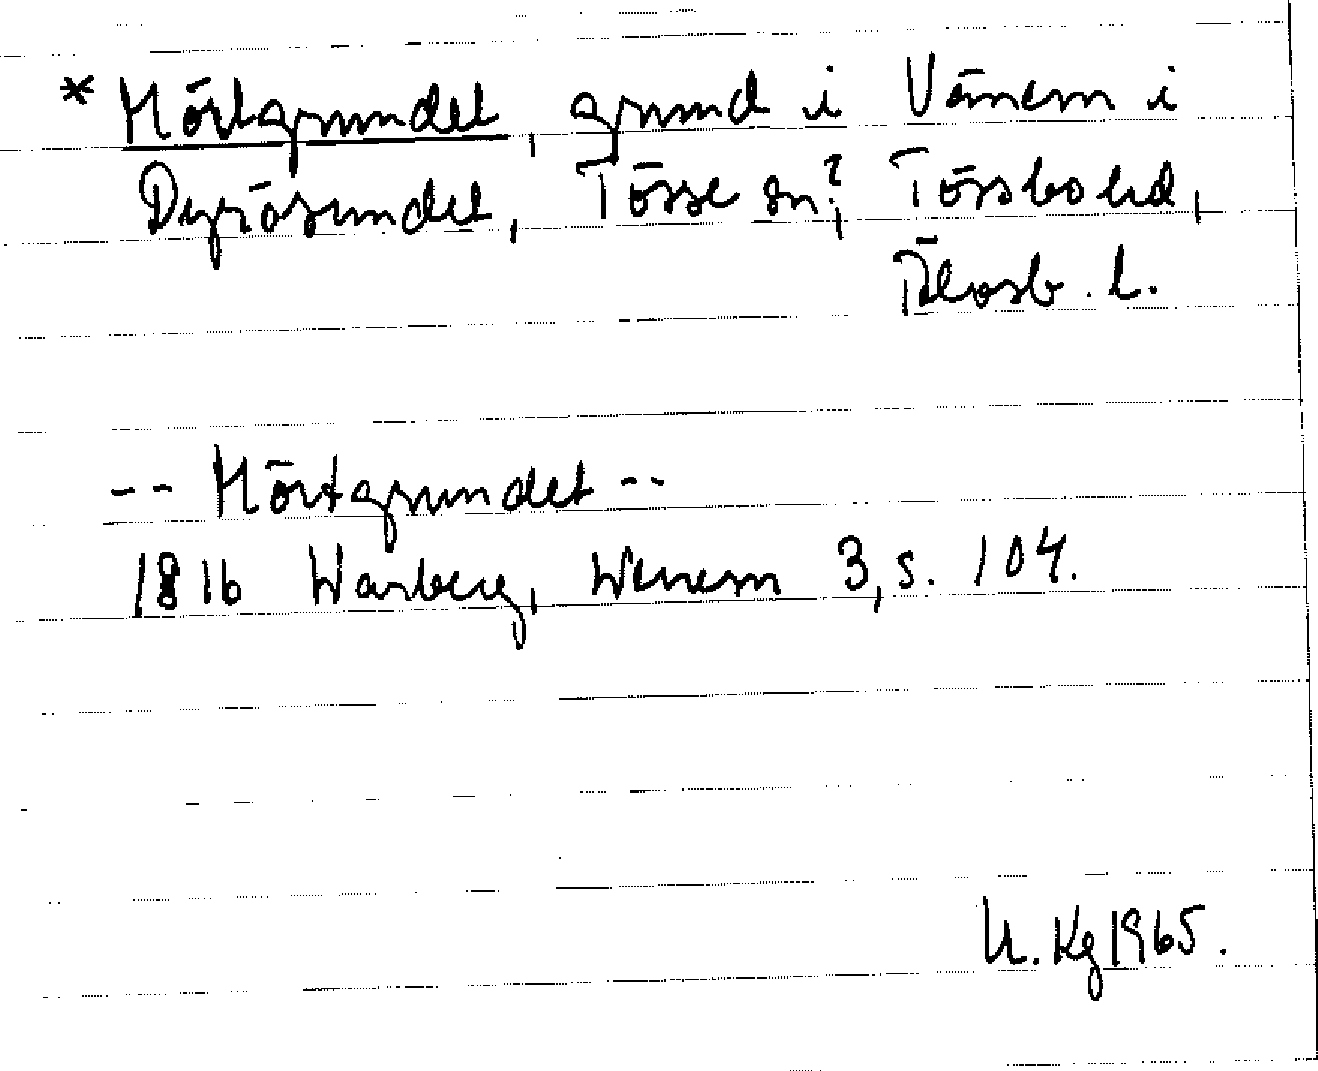 * Mörtgrundet, grund i Vänern i
Dyrösundet, Tösse sn?, Tössbo hd,
Älvsb. l.
-- Mörtgrundet --
1816 Warberg, Wenern 3, s. 104.
U. Kg 1965.